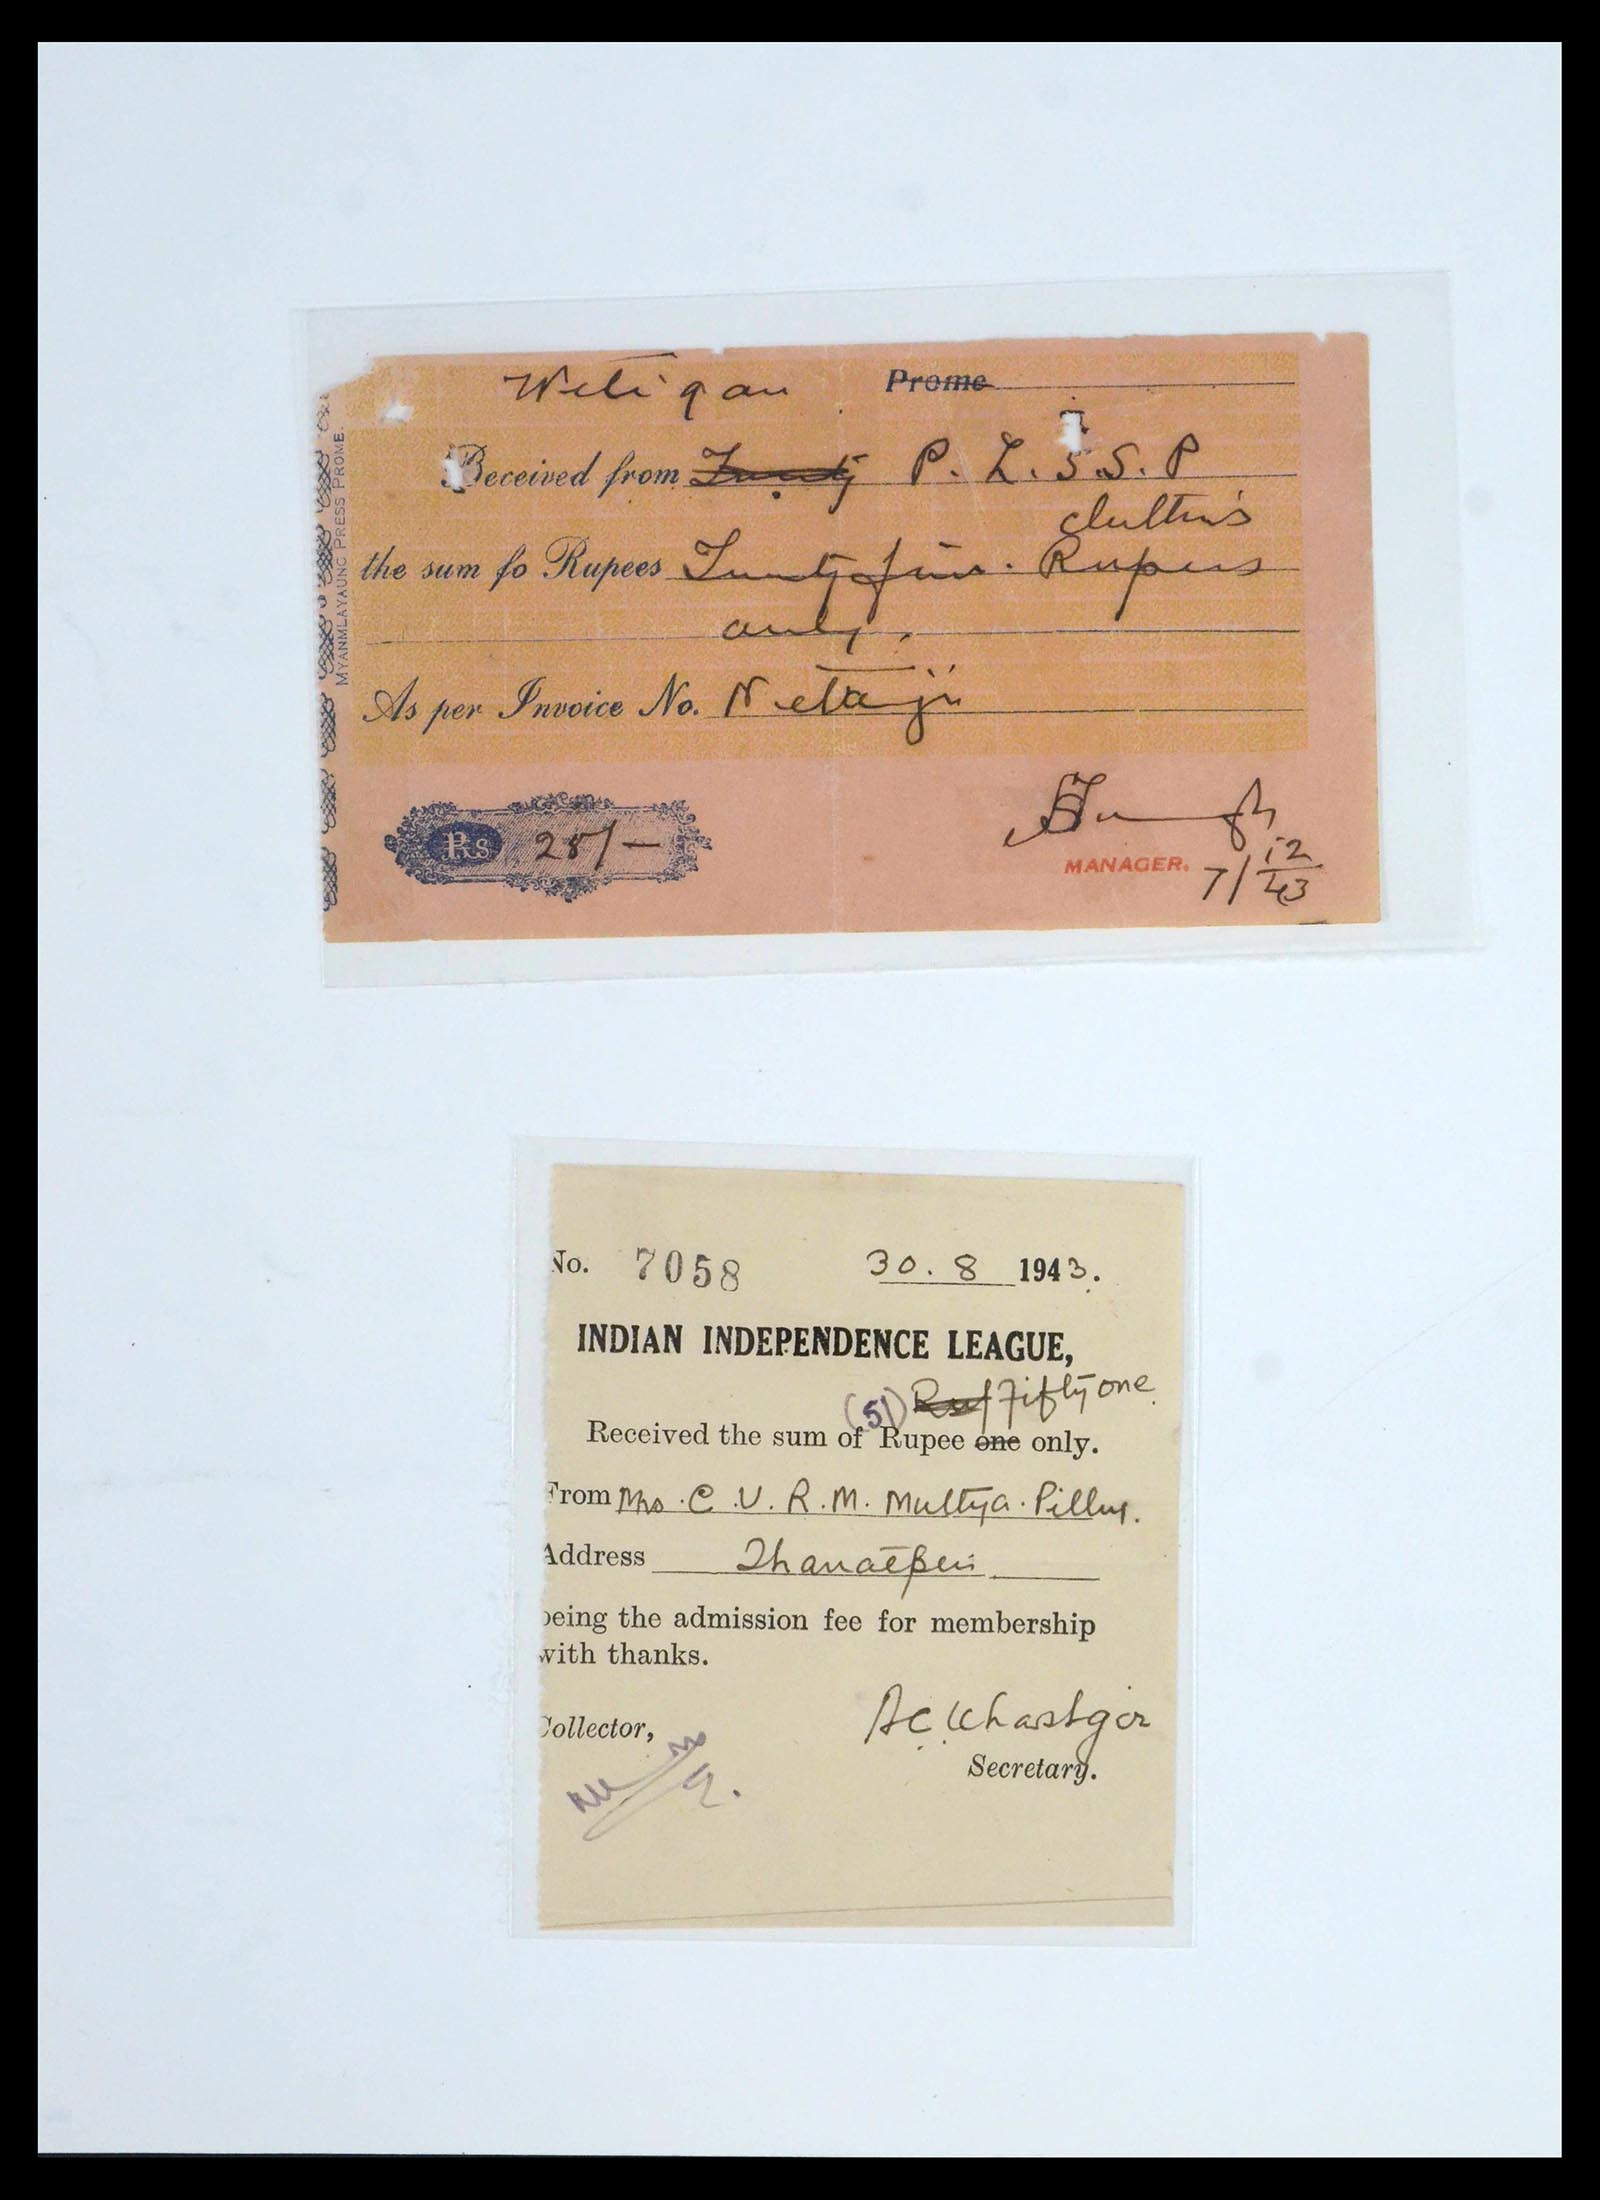 Wetigan Prome
MYANMLAYAUNG PRESS PROME.
Received from Twenty P. L. S. S. P
chettiars
the sum fo Rupees Twenty five. Rupees
only.
As per Invoice No. Netaji
Rs 25/-
MANAGER.
7/12/43
No. 7058 30.8 1943.
INDIAN INDEPENDENCE LEAGUE,
(51) Fifty one
Received the sum of Rupee one only.
From Mrs. C. V. R. M. Muttya. Pilly.
Address Thanatpin
being the admission fee for membership
with thanks.
Collector,
A C Khastgir
Secretary.